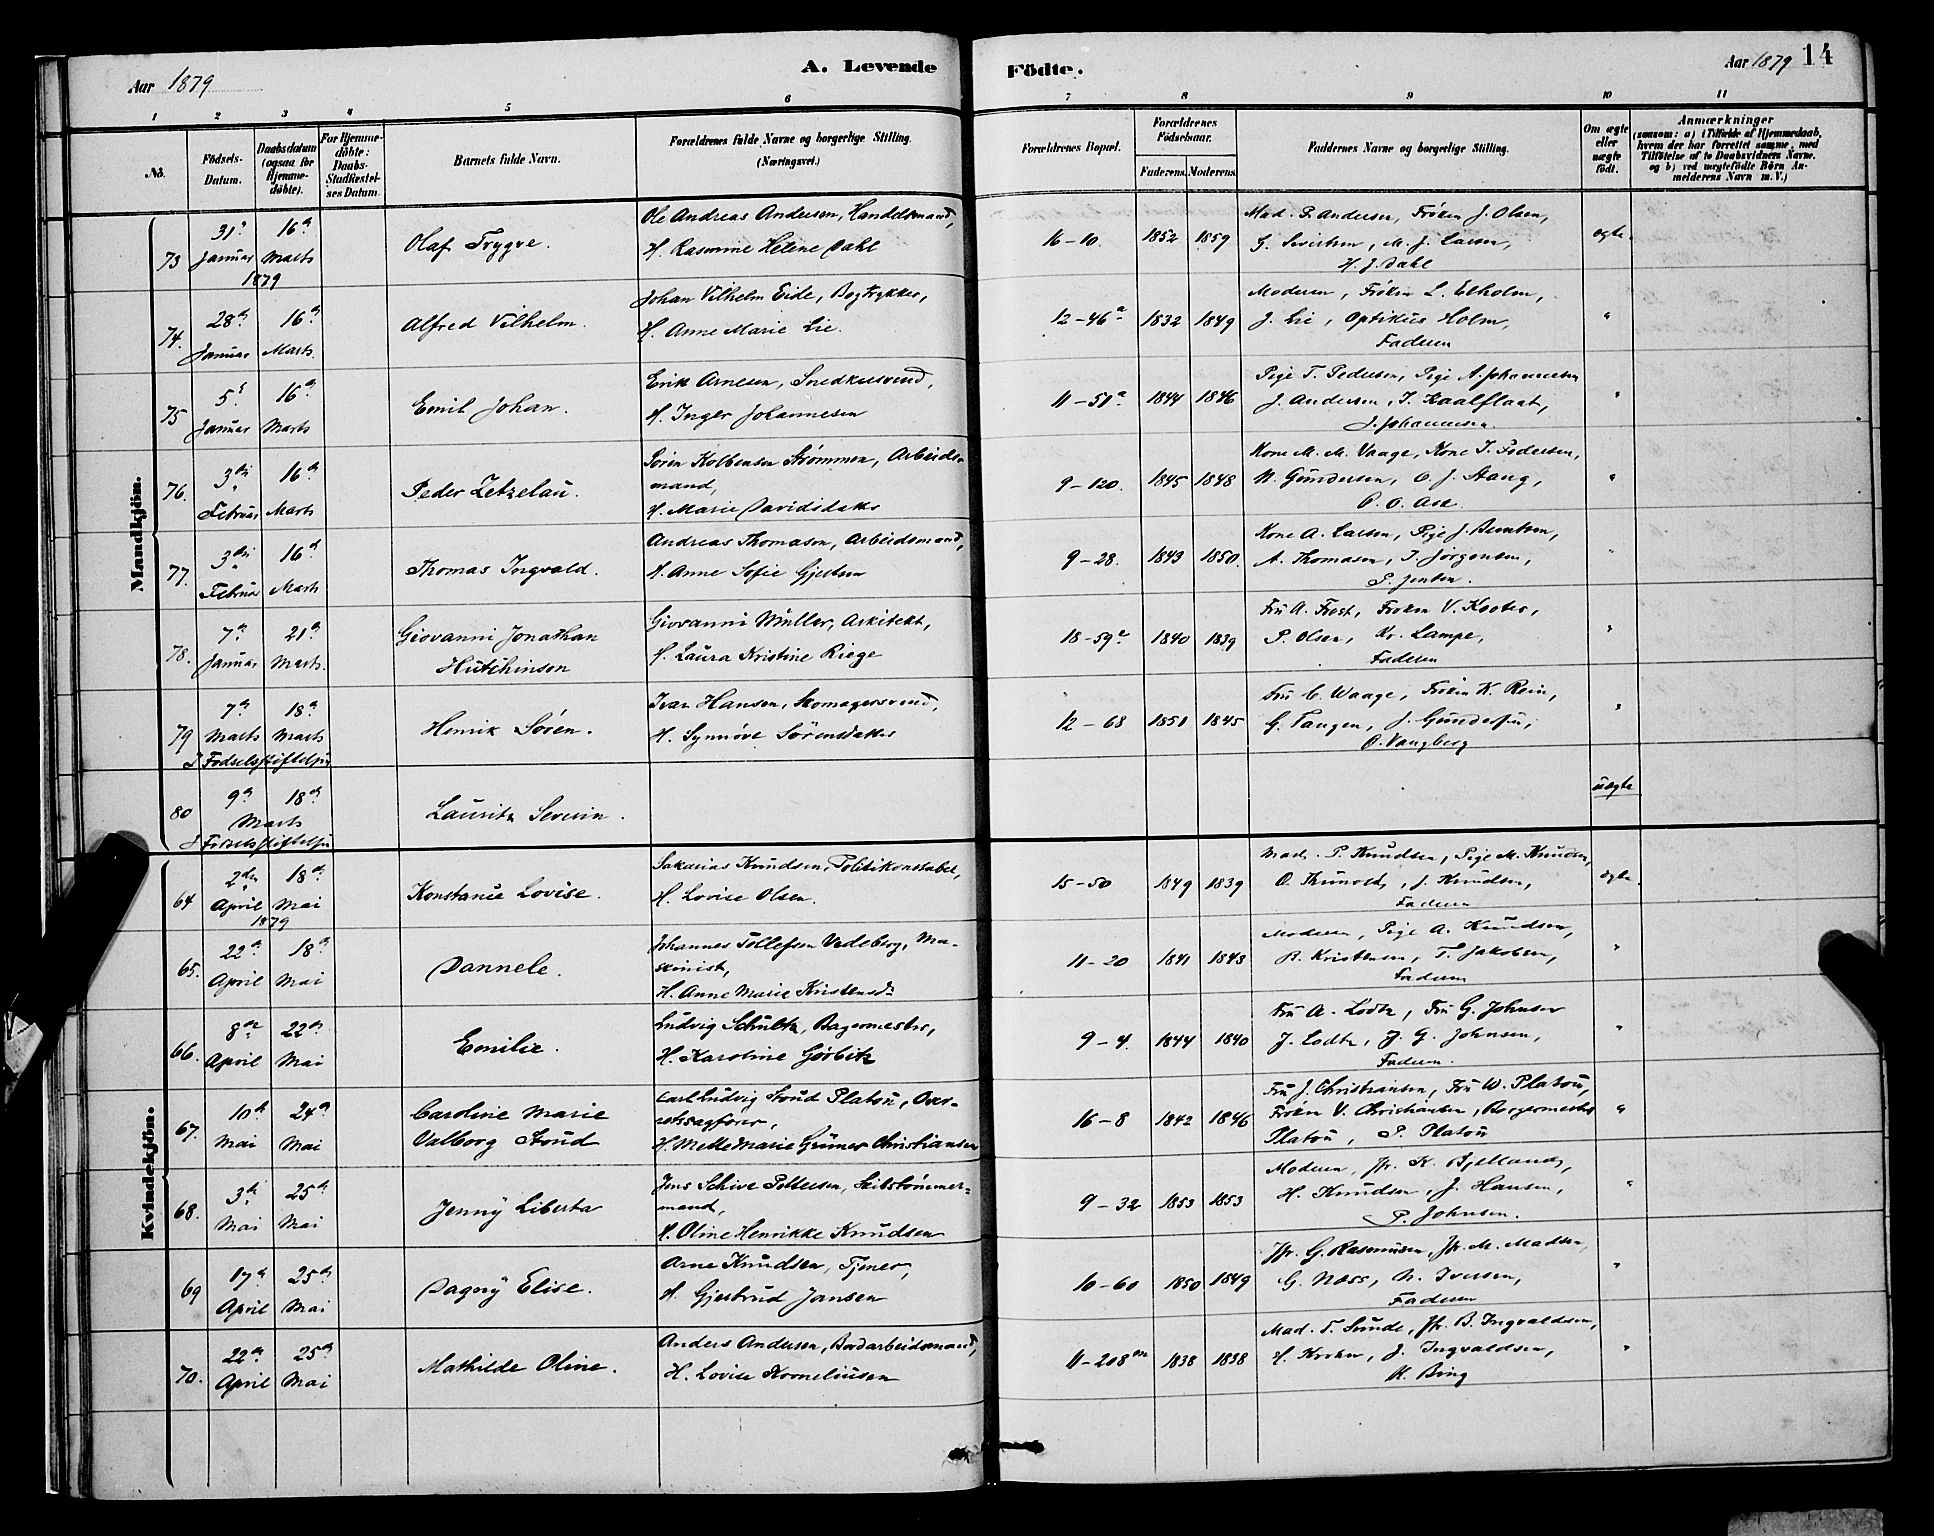 Aar 1879
A. Levende Födte.
Aar 1879 14
1 2 3 4 5 6 7 8 9 10 11
No.
Födsels-Datum.
Daabsdatum (ogsaa for Hjemmedøbte).
For Hjemmedöbte: Daabs-Stadfæstelses Datum.
Barnets fulde Navn.
Forældrenes fulde Navne og borgerlige Stilling. (Næringsvei.)
Forældrenes Bopæl.
Forældrenes Födselsaar.
Faderens. Moderens.
Faddernes Navne og borgerlige Stilling.
Om ægte eller uægte födt.
Anmærkninger
(saasom: a) i Tilfælde af Hjemmedaab, hvem der har forrettet samme, med Tilföielse af to Daabsvidners Navne, og b) ved uægtefödte Börn Anmelderens Navn m. V.)
Mandkjön.
73 31 Januar 1879 16 Marts Olaf Trygve. Ole Andreas Andersen, Handelsmand,
H. Rasmine Helene Dahl
16-10. 1852 1859 Mad. P. Andersen, Frøken J. Olsen,
G. Sivertsen, M. J. Larsen,
H. J. Dahl
ægte.
74. 28 Januar 16 Marts. Alfred Vilhelm. Johan Vilhelm Eide, Bogtrykker,
H. Anne Marie Lie.
12-46a 1832 1849 Moderen, Frøken L. Elholm,
J. Lie, Optikus Holm,
Faderen
"
75 5 Januar 16 Marts Emil Johan. Erik Arnesen, Snedkersvend,
H. Inger Johannesen
11-51a 1844 1846 Pige T. Pedersen, Pige A. Johannesen
J. Andersen, I. Kaalflaat,
J. Johannesen
"
76. 3 Februar 16 Marts Peder Zetzelau. Sören Kolbensen Strömmen, Arbeids-
mand,
H. Marie Davidsdatter
9-120. 1845 1848 Kone M. M. Vaage, Kone I. Pedersen,
N. Gundersen, O. J. Stang,
O. O. Ask
"
77. 3 Februar 16 Marts Thomas Ingvald. Andreas Thomason, Arbeidsmand,
H. Anne Sofie Gjertsen
9-28. 1843 1850. Kone A. Larsen, Pige J. Berntsen,
A. Thomasen, I. Jørgensen,
P. Jensen.
"
78. 7 Januar 21 Marts. Giovanni Jonathan
Hutchinson
Giovanni Müller, Arkitekt,
H. Laura Kristine Riege
18-59a 1840 1839 Fru A. Frost, Frøken V. Koster,
P. Olsen, Kr. Lampe,
Faderen
"
79 7 Marts 18 Marts Henrik Sören. Ivar Hansen, Skomagersvend,
H. Synnöve Sörensdatter
I Fødselsstiftelsen
12-68 1851 1845 Fru C. Waage, Frøken K. Rein,
G. Tangen, J. Gundersen,
O. Vangberg
"
80 9 18 Marts Lauritz Severin. uægte
I Fødselsstiftelsen
Kvindekjön.
64 2den April 1879 18 Mai Konstanse Lovise. Sakarias Knudsen, Politikonstabel,
H. Lovise Olsen.
15-50 1849 1839 Mad. P. Knudsen, Pige M. Knudsen,
O. Thunold, J. Knudsen,
Faderen
ægte.
65. 22 April 18 Mai Dannele. Johannes Tollefsen Vadeberg, Ma-
skinist,
H. Anne Marie Kristensdr
11-20 1841 1843 Moderen, Pige A. Knudsen,
R. Kristensen, T. Jakobsen,
Faderen
"
66. 8 April 22 Mai Emilie. Ludvig Schultz, Bagermester,
H. Karoline Görbitz
9-4. 1844 1840 Fru A. Lodtz, Fru G. Johnsen
J. Lodtz, J. G. Johnsen,
Faderen.
"
67. 10 Mai 24 Mai Caroline Marie
Valborg Stoud
Carl Ludvig Stoud Platou, Over-
retssagfører,
H. Mette Marie Grüner Christiansen
16-8 1842 1846 Fru J. Christiansen, Fru W. Platou,
Frøken V. Christiansen, Borgermester
Platou, P. Platou
"
68. 3 Mai 25 Mai Jenny Liberta Jens Schive Pettersen, Skibstömmer-
mand,
H. Oline Henrikke Knudsen
9-32 1853 1853 Moderen, Jfr. K. Bjelland,
H. Knudsen, J. Hansen,
P. Johnsen.
"
69 17 April 25 Mai Dagny Elise. Arne Knudsen, Tjener,
H. Gjertrud Jansen
10-60 1850 1849 Jfr. G. Rasmusen, Jfr. M. Madsen,
G. Næss, N. Iversen,
Faderen
"
70. 22 April 25 Mai Mathilde Oline. Anders Andersen, Bordarbeidsmand,
H. Lovise Korneliusen
11-208 1838 1838 Mad. T. Sunde, Jfr. B. Ingvaldsen,
H. Krohn, J. Ingvaldsen,
K. Bing
"